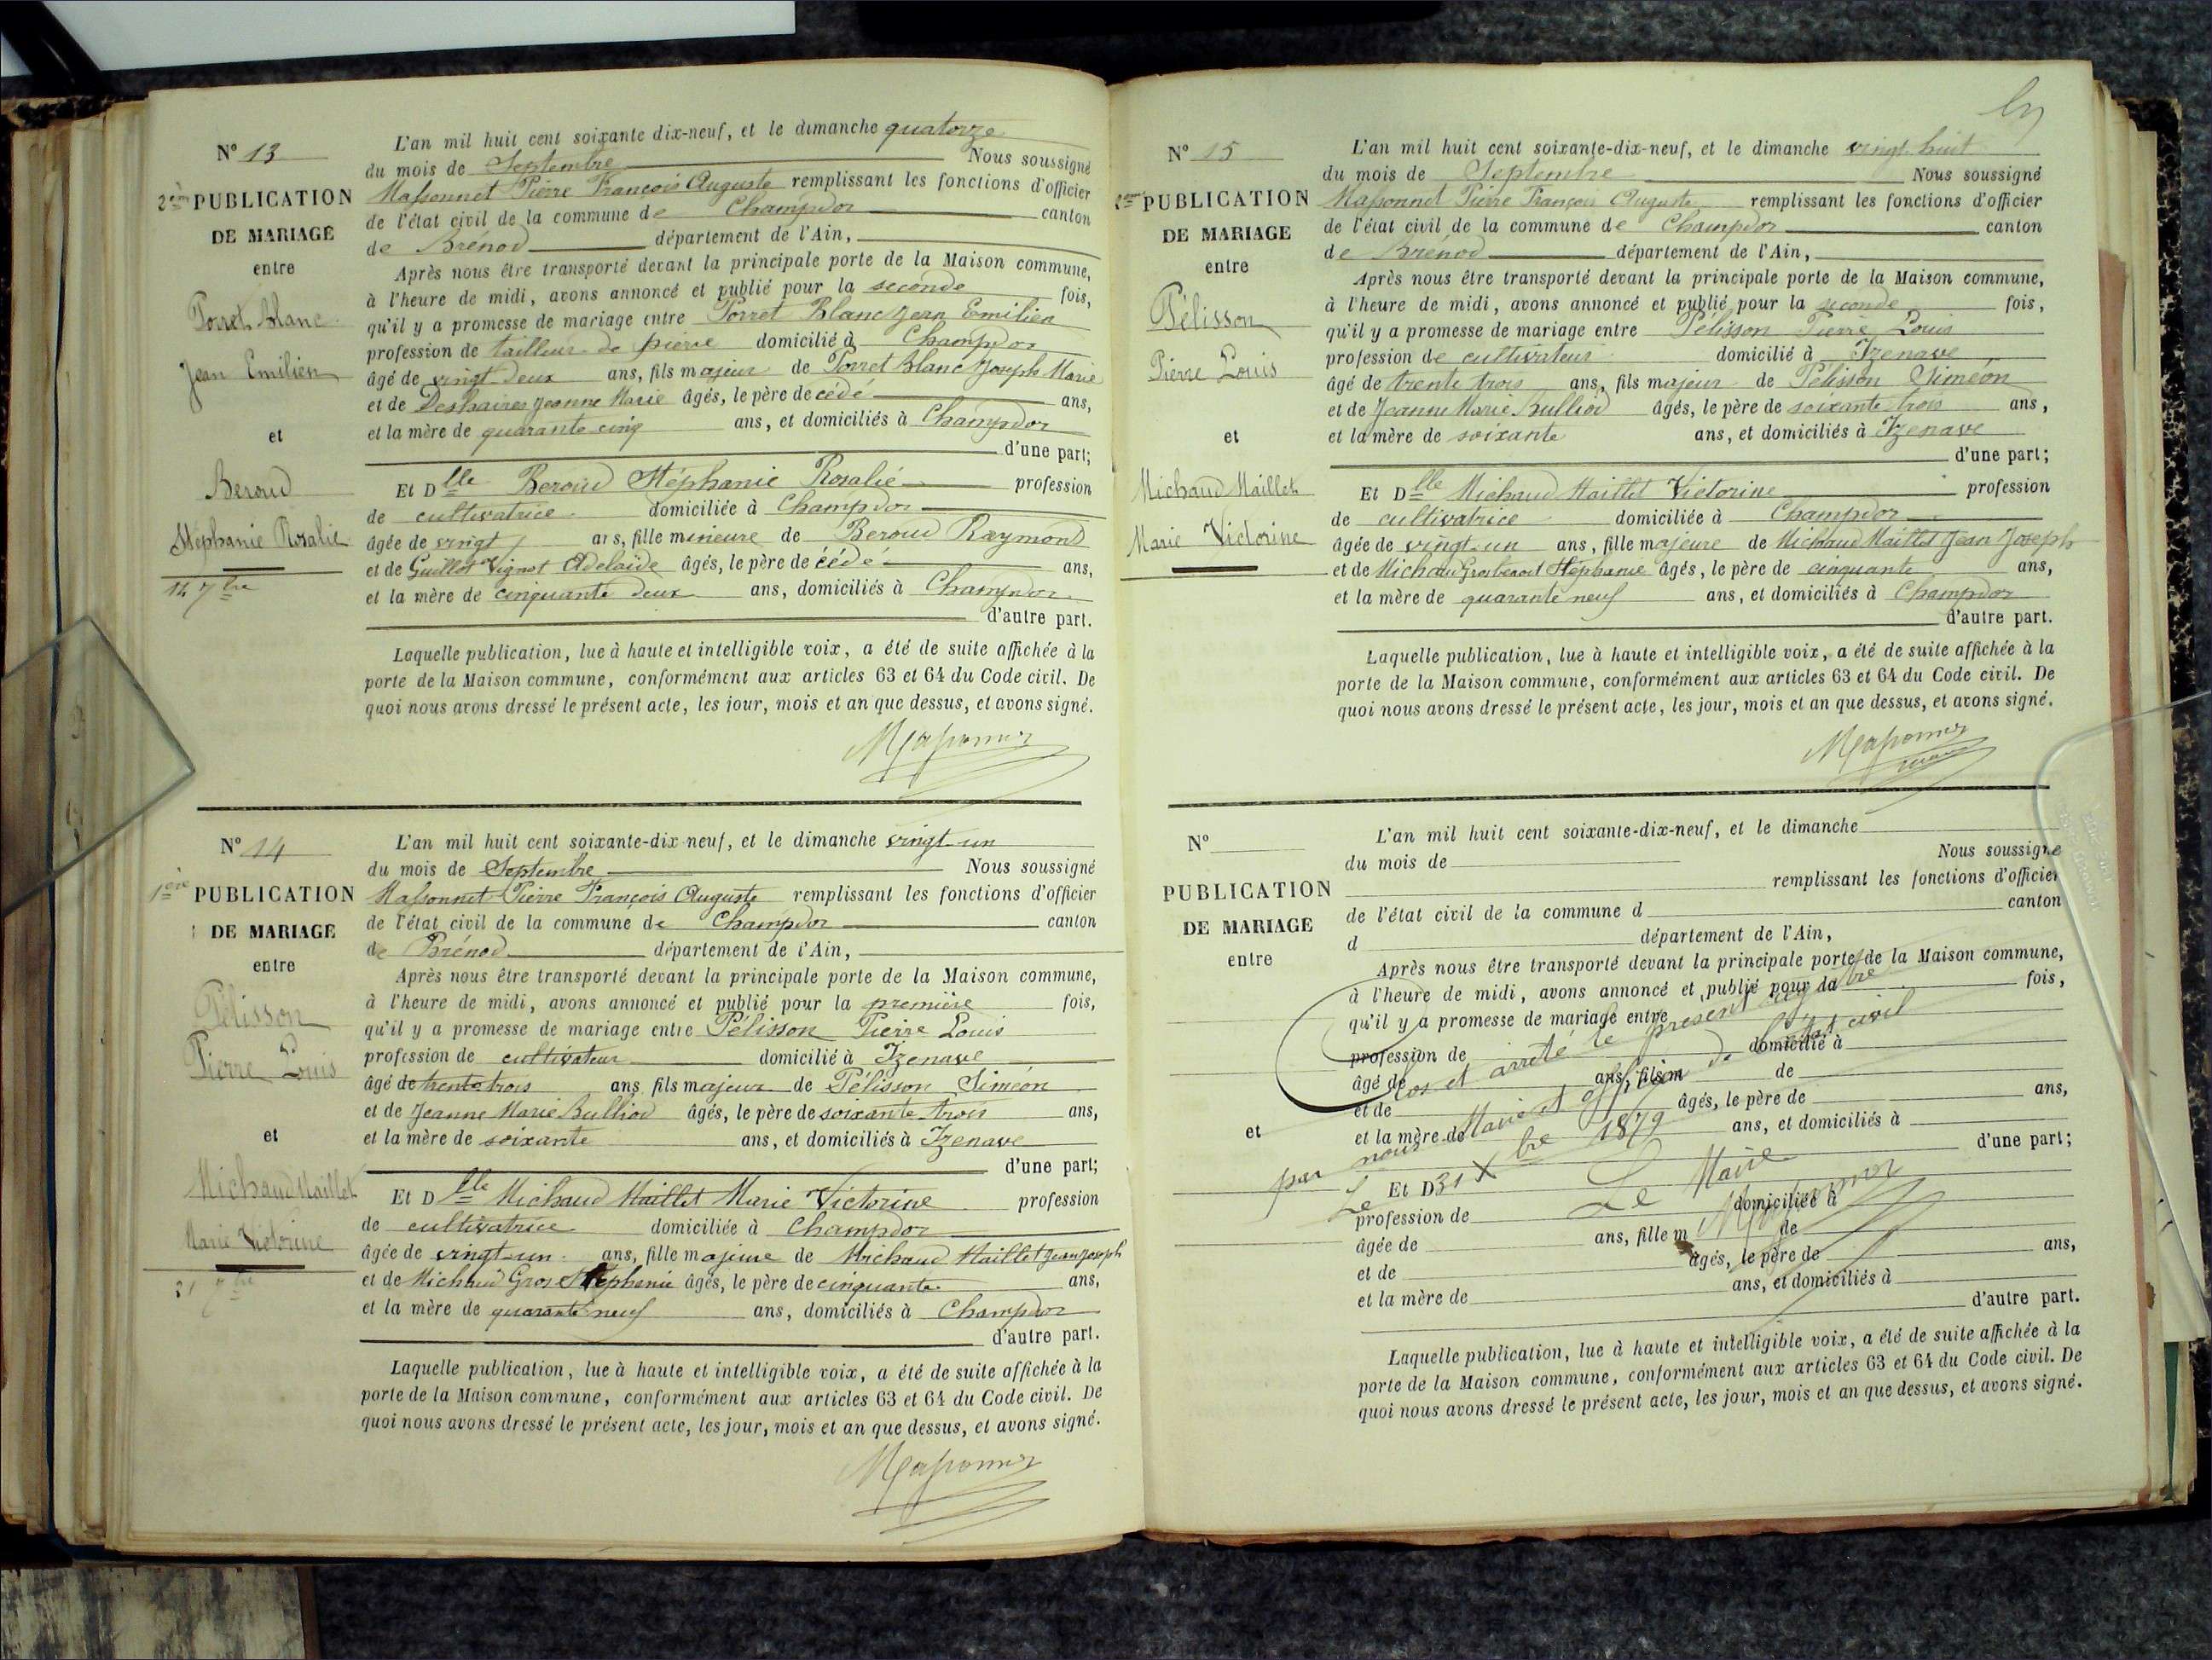 N° 13
2ème PUBLICATION
DE MARIAGE
entre
Porret Blanc
Jean Emilien
et
Beroud
Stéphanie Rosalie
14 7bre
L'an mil huit cent soixante dix-neuf, et le dimanche quatorze
du mois de Septembre Nous soussigné
Massonnet Pierre François Auguste remplissant les fonctions d'officier
de l'état civil de la commune de Champdor canton
de Brénod département de l'Ain,
Après nous être transporté devant la principale porte de la Maison commune,
à l'heure de midi, avons annoncé et publié pour la seconde fois,
qu'il y a promesse de mariage entre Porret Blanc Jean Emilien
profession de tailleur de pierre domicilié à Champdor
âgé de vingt-deux ans, fils majeur de Porret Blanc Joseph Marie
et de Deshaires Jeanne Marie âgés, le père de cédé ans,
et la mère de quarante cinq ans, et domiciliés à Champdor
d'une part;
Et Dlle Beroud Stéphanie Rosalie profession
de cultivatrice domiciliée à Champdor
âgée de vingt ans, fille mineure de Beroud Raymond
et de Guillot Vignot Adelaïde âgés, le père de cédé ans,
et la mère de cinquante deux ans, domiciliés à Champdor
d'autre part.
Laquelle publication, lue à haute et intelligible voix, a été de suite affichée à la
porte de la Maison commune, conformément aux articles 63 et 64 du Code civil. De
quoi nous avons dressé le présent acte, les jour, mois et an que dessus, et avons signé.
Massonnet
N° 14
1ère PUBLICATION
DE MARIAGE
entre
Pélisson
Pierre Louis
et
Michaud Maillet
Marie Victorine
21 7bre
L'an mil huit cent soixante-dix-neuf, et le dimanche vingt-un
du mois de Septembre Nous soussigné
Massonnet Pierre François Auguste remplissant les fonctions d'officier
de l'état civil de la commune de Champdor canton
de Brénod département de l'Ain,
Après nous être transporté devant la principale porte de la Maison commune,
à l'heure de midi, avons annoncé et publié pour la première fois,
qu'il y a promesse de mariage entre Pélisson Pierre Louis
profession de cultivateur domicilié à Izenave
âgé de trente trois ans fils majeur de Pélisson Siméon
et de Jeanne Marie Bulliod âgés, le père de soixante trois ans,
et la mère de soixante ans, et domiciliés à Izenave
d'une part;
Et Dlle Michaud Maillet Marie Victorine profession
de cultivatrice domiciliée à Champdor
âgée de vingt-un ans, fille majeure de Michaud Maillet Jean Joseph
et de Michaud Gros Stéphanie âgés, le père de cinquante ans,
et la mère de quarante neuf ans, domiciliés à Champdor
d'autre part.
Laquelle publication, lue à haute et intelligible voix, a été de suite affichée à la
porte de la Maison commune, conformément aux articles 63 et 64 du Code civil. De
quoi nous avons dressé le présent acte, les jour, mois et an que dessus, et avons signé.
Massonnet
N° 15
2ème PUBLICATION
DE MARIAGE
entre
Pélisson
Pierre Louis
et
Michaud Maillet
Marie Victorine
L'an mil huit cent soixante-dix-neuf, et le dimanche vingt huit
du mois de Septembre Nous soussigné
Massonnet Pierre François Auguste remplissant les fonctions d'officier
de l'état civil de la commune de Champdor canton
de Brénod département de l'Ain,
Après nous être transporté devant la principale porte de la Maison commune,
à l'heure de midi, avons annoncé et publié pour la seconde fois,
qu'il y a promesse de mariage entre Pélisson Pierre Louis
profession de cultivateur domicilié à Izenave
âgé de trente trois ans, fils majeur de Pélisson Siméon
et de Jeanne Marie Bulliod âgés, le père de soixante trois ans,
et la mère de soixante ans, et domiciliés à Izenave
d'une part;
Et Dlle Michaud Maillet Victorine profession
de cultivatrice domiciliée à Champdor
âgée de vingt-un ans, fille majeure de Michaud Maillet Jean Joseph
et de Michaud Stéphanie âgés, le père de cinquante ans,
et la mère de quarante neuf ans, et domiciliés à Champdor
d'autre part.
Laquelle publication, lue à haute et intelligible voix, a été de suite affichée à la
porte de la Maison commune, conformément aux articles 63 et 64 du Code civil. De
quoi nous avons dressé le présent acte, les jour, mois et an que dessus, et avons signé.
Massonnet
maire
N°
PUBLICATION
DE MARIAGE
entre
et
L'an mil huit cent soixante-dix-neuf, et le dimanche
du mois de Nous soussigné
remplissant les fonctions d'officier
de l'état civil de la commune d canton
d département de l'Ain,
Après nous être transporté devant la principale porte de la Maison commune,
à l'heure de midi, avons annoncé et publié pour la fois,
qu'il y a promesse de mariage entre
profession de domicilié à
âgé de ans, fils m de
et de âgés, le père de ans,
et la mère de ans, et domiciliés à
d'une part;
Et D
profession de domiciliée à
âgée de ans, fille m de
et de âgés, le père de ans,
et la mère de ans, et domiciliés à
d'autre part.
Clos et arrêté le présent registre
par nous Maire et officier de l'état civil
Le 31 Xbre 1879
Le Maire
Massonnet
Laquelle publication, lue à haute et intelligible voix, a été de suite affichée à la
porte de la Maison commune, conformément aux articles 63 et 64 du Code civil. De
quoi nous avons dressé le présent acte, les jour, mois et an que dessus, et avons signé.